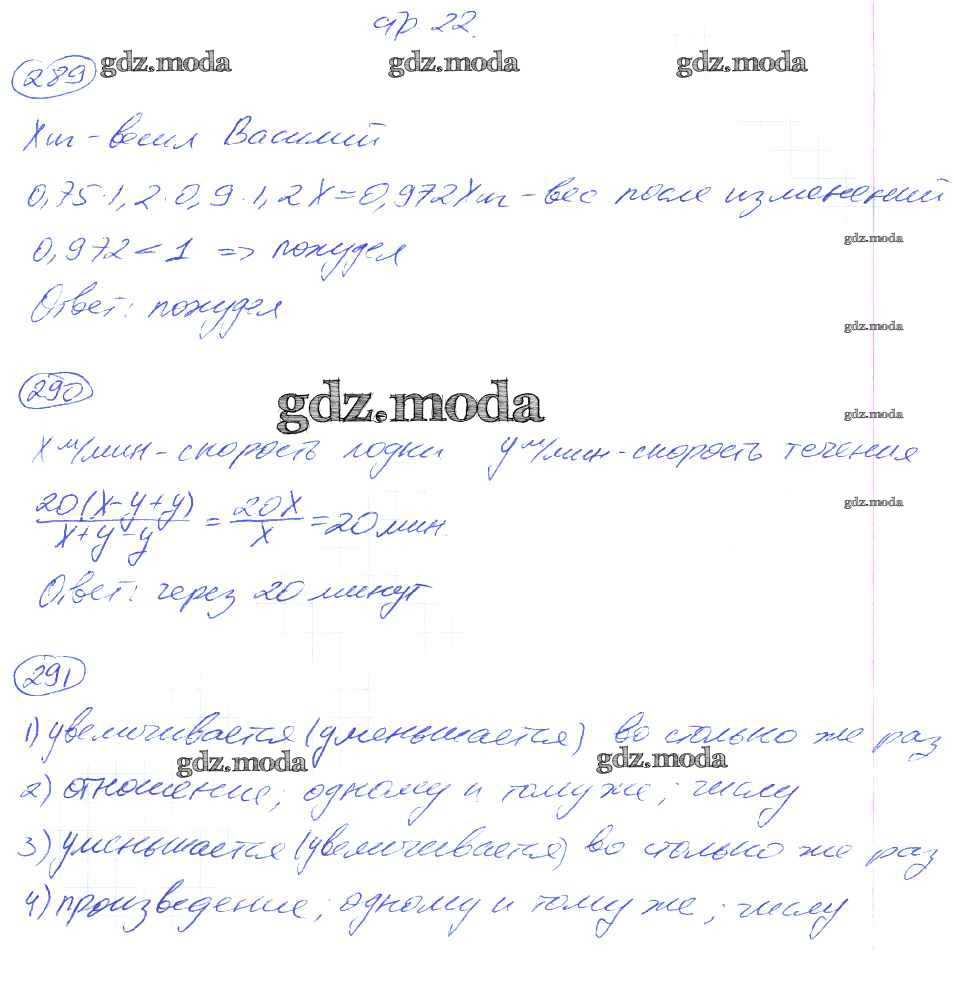 стр 22.
289 gdz.moda gdz.moda gdz.moda
X кг - весил Василий
0,75·1,2·0,9·1,2X=0,972X кг - вес после изменений
gdz.moda
0,972<1 => похудел
Ответ: похудел
gdz.moda
290
gdz.moda
gdz.moda
X м/мин - скорость лодки y м/мин - скорость течения
gdz.moda
20(X-y+y)/X+y-y = 20X/X = 20 мин.
Ответ: через 20 минут
291
1) увеличивается (уменьшается) во столько же раз
gdz.moda gdz.moda
2) отношение; одному и тому же; числу
3) уменьшается (увеличивается) во столько же раз
4) произведение; одному и тому же; числу